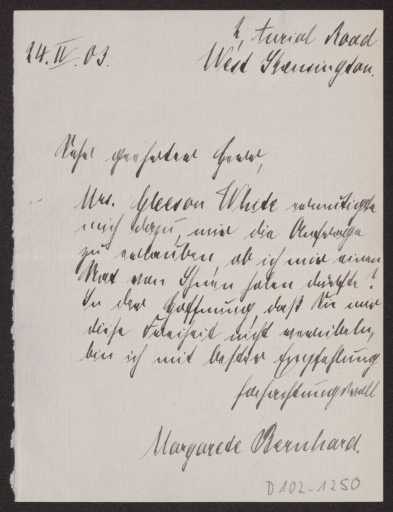 24. IV. 03.
2, Auriol Road
West Kensington.
Sehr geehrter Herr,
Mrs. Gleeson White ermutigte
mich dazu, mir die Anfrage
zu erlauben, ob ich mir einen
Rat von Ihnen holen dürfte!
In der Hoffnung, daß Sie mir
diese Freiheit nicht verübeln,
bin ich mit bester Empfehlung
hochachtungsvoll
Margarete Bernhard.
D 102-1250